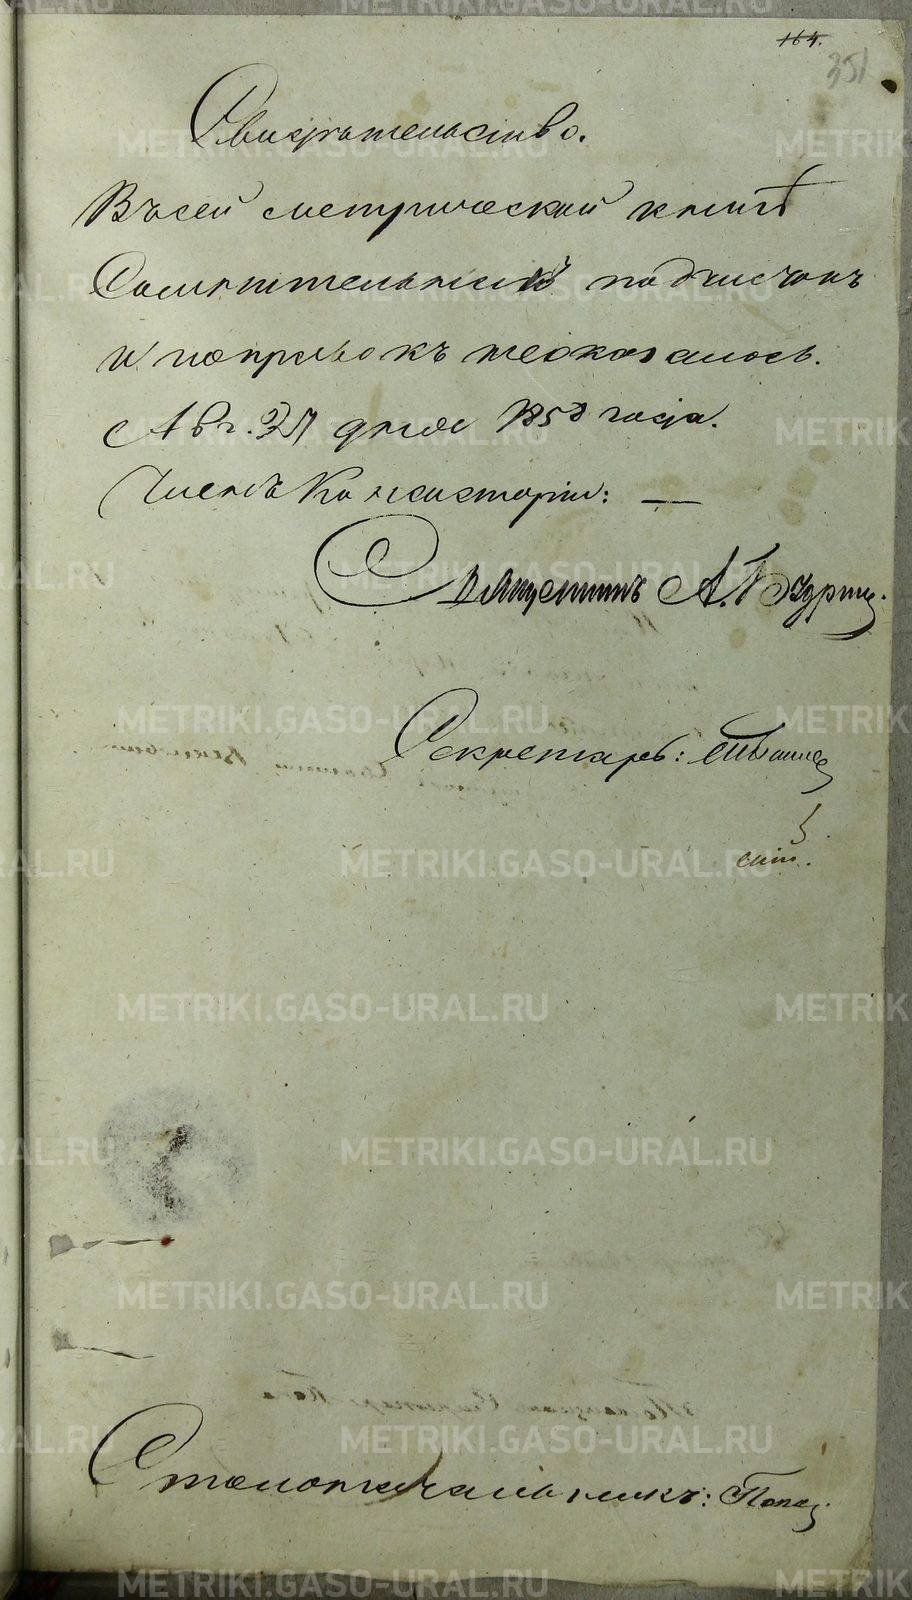 164.
351
Свидѣтельство.
Въ сей метрической книгѣ
Сомнительныхъ подчистокъ
и поправокъ не оказалось.
Авг. 31 дня 1858 года.
Членъ Консисторіи: —
Священникъ А.
Секретарь:
Столоначальникъ: Попов
METRIKI.GASO-URAL.RU